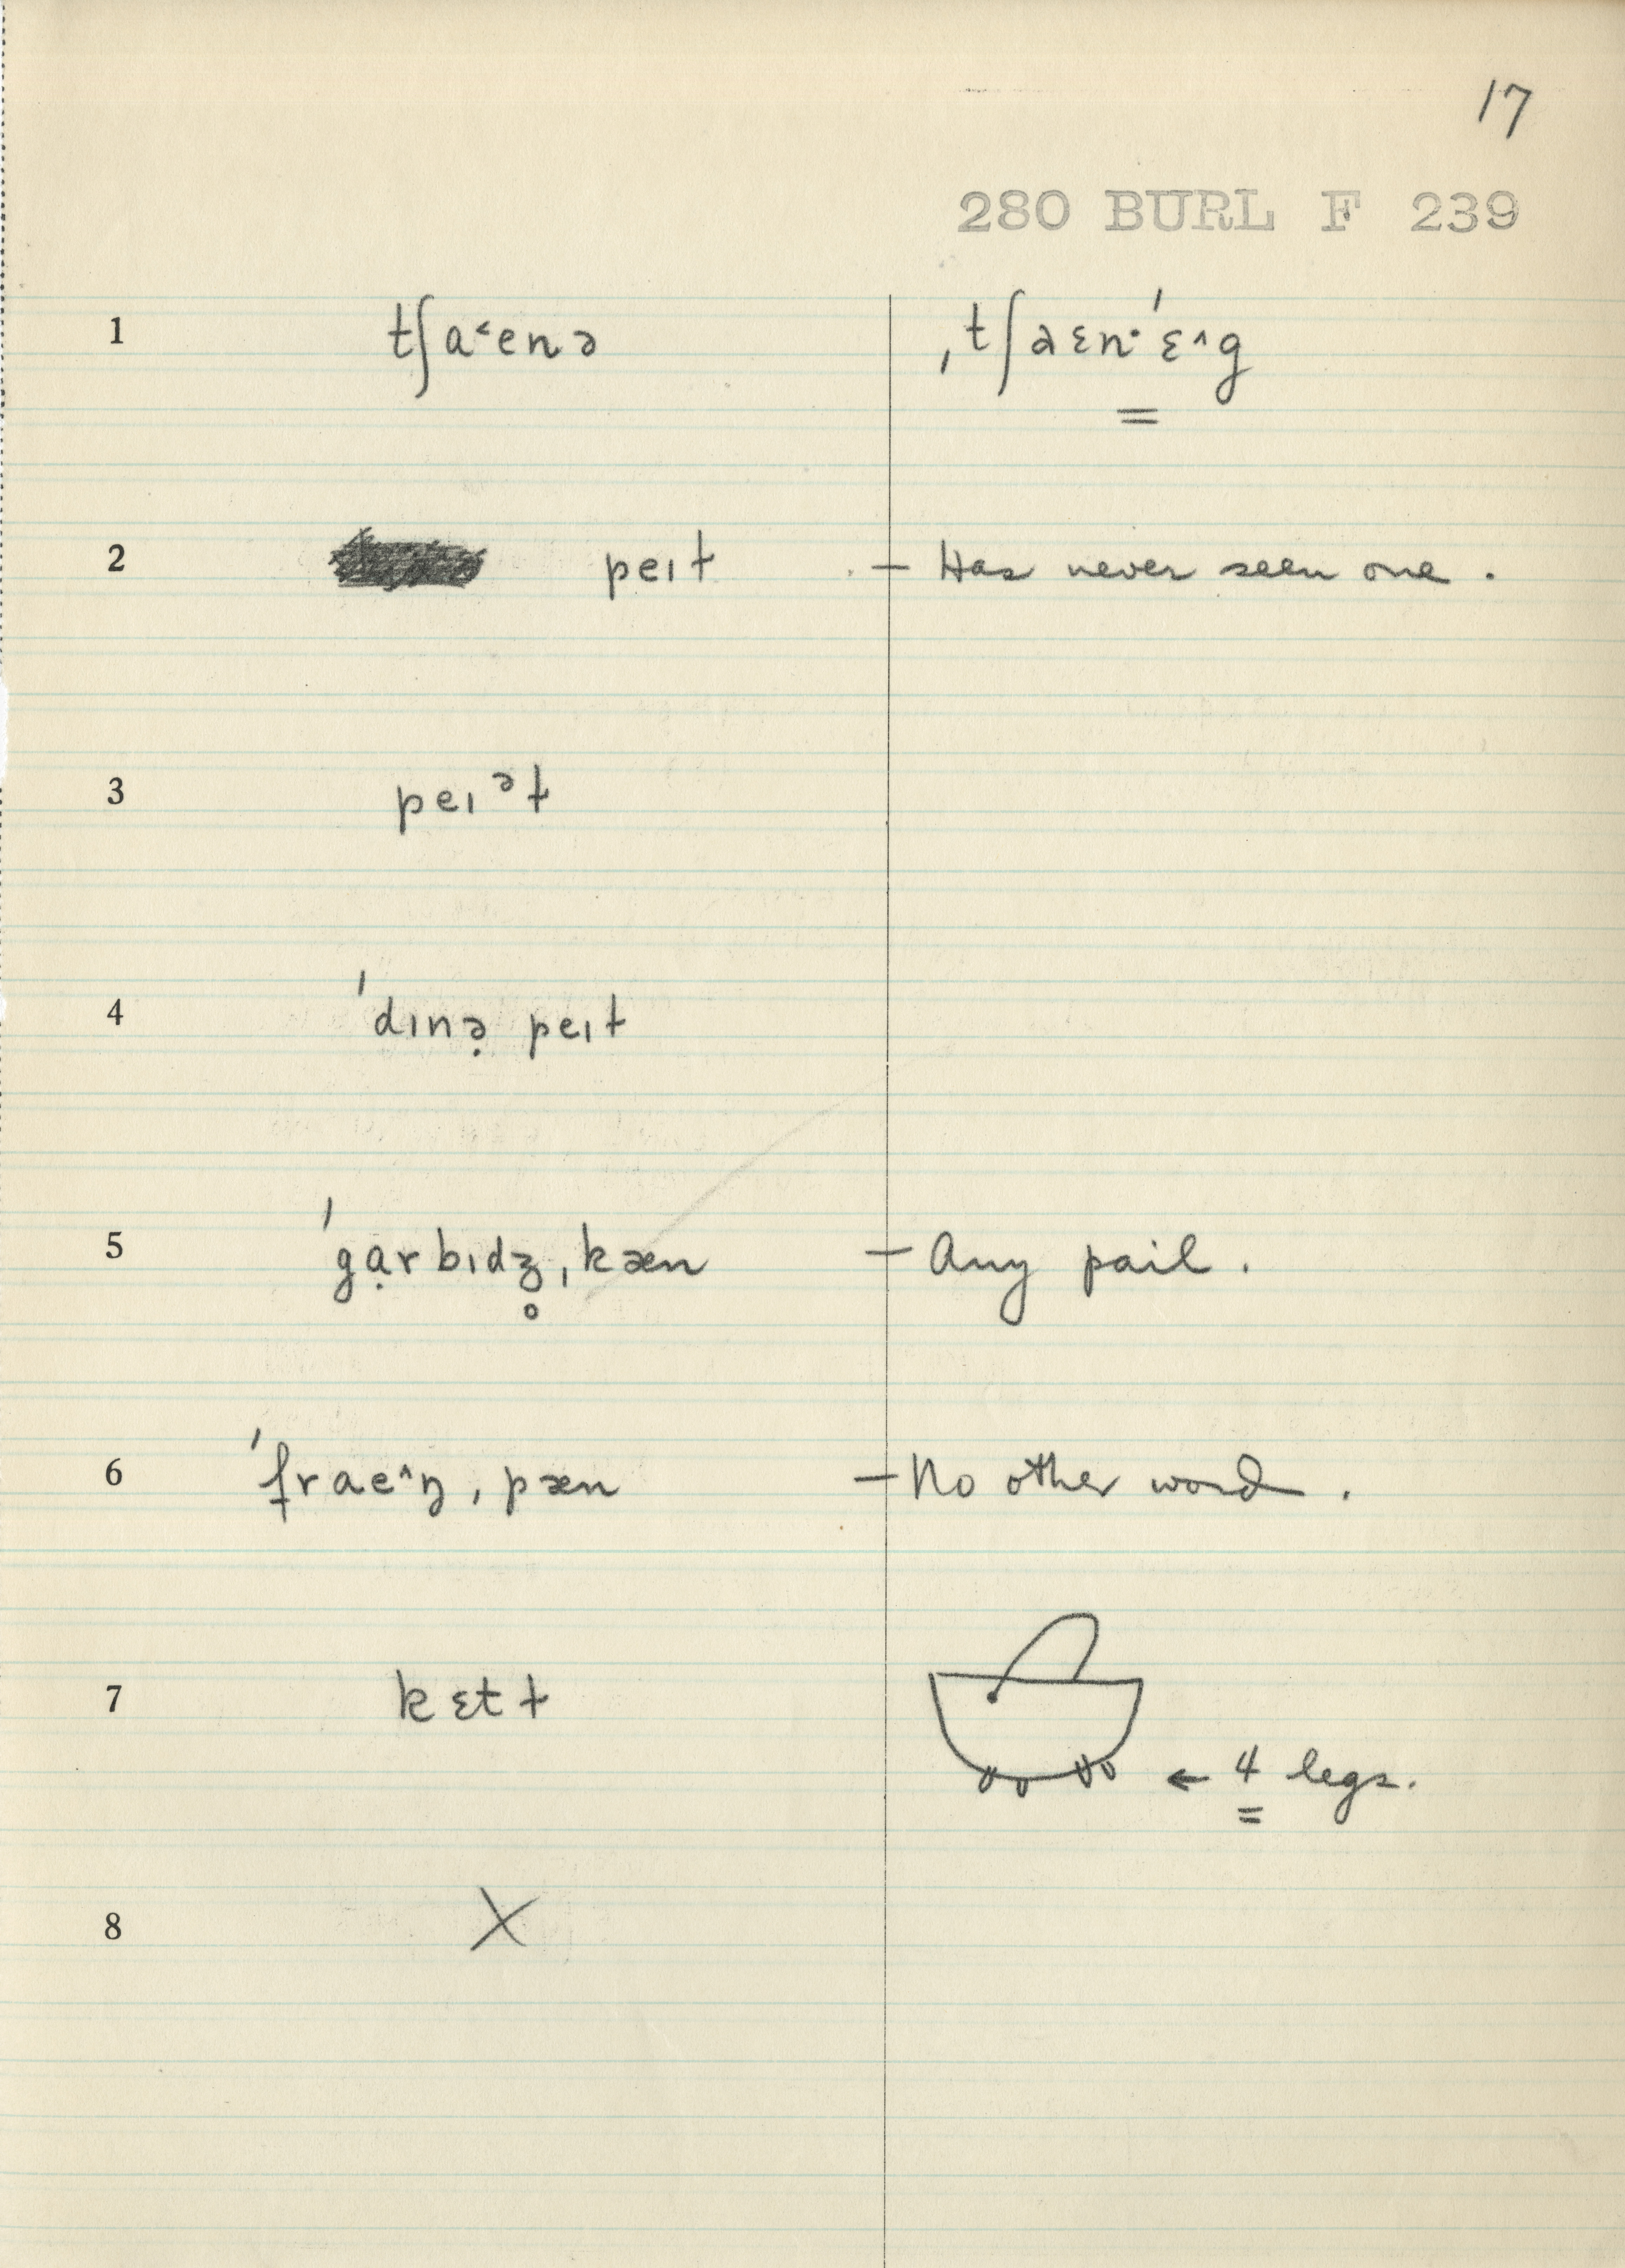 17
280 BURL F 239
1 tʃa˂enə ˌtʃaɛn·ˈɛ^g
2 peɪɫ – Has never seen one.
3 peɪᵊɫ
4 ˈdɪnə̣ peɪɫ
5 ˈgạrbɪdʒ̥ˌkæn – Any pail.
6 ˈfrae^ŋˌpæn – No other word.
7 kɛtɫ ← 4 legs.
8 X